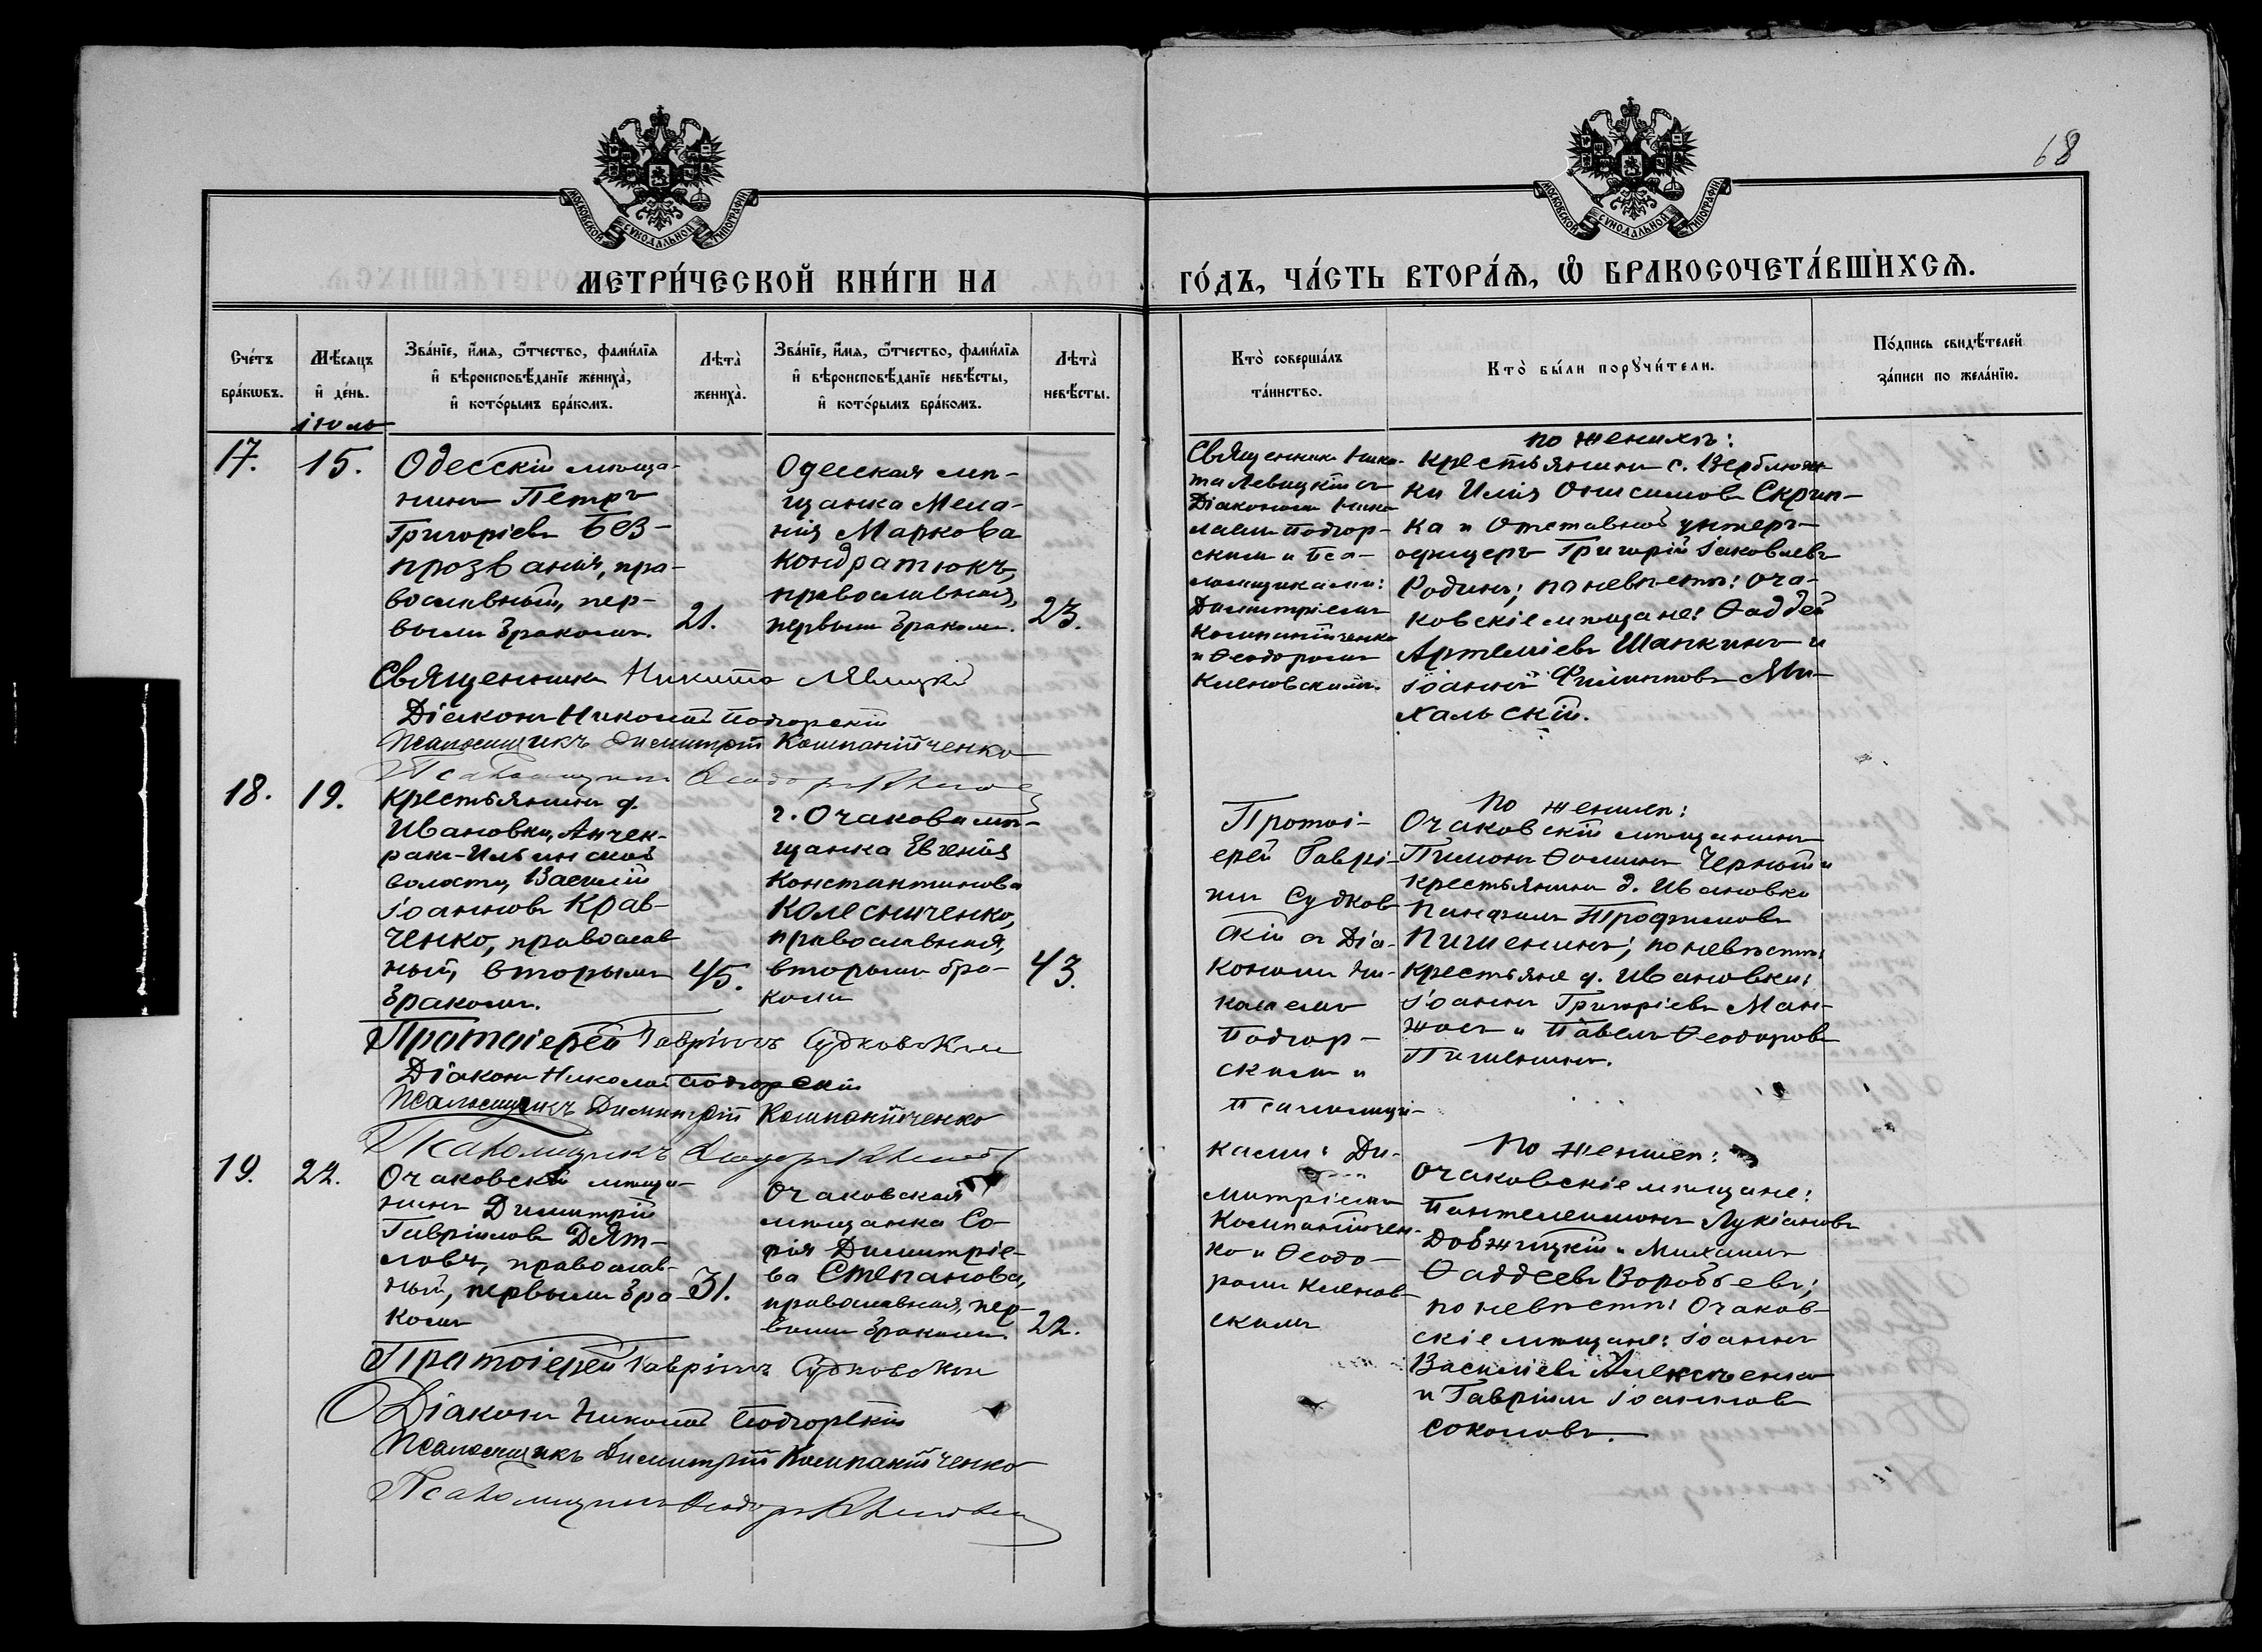 68
МОСКОВСКОЙ СѴНОДАЛЬНОЙ ТИПОГРАФІИ
МОСКОВСКОЙ СѴНОДАЛЬНОЙ ТИПОГРАФІИ
МЕТРИ́ЧЕСКОЙ КНИ́ГИ НА
ГО́ДЪ, ЧА́СТЬ ВТОРА́Ѧ, Ѽ БРАКОСОЧЕТА́ВШИХСѦ.
Сче́тъ бра́кѡвъ.
Мѣ́сѧцъ и҆ де́нь.
Зва́нїе, и҆́мѧ, ѻ҆́тчество, фамѝлїѧ
и҆ вѣроисповѣ́данїе жениха̀,
и҆ кото́рымъ бра́комъ.
Лѣта̀ жениха̀.
Зва́нїе, и҆́мѧ, ѻ҆́тчество, фами́лїѧ
и҆ вѣроисповѣ́данїе невѣ́сты,
и҆ кото́рымъ бра́комъ.
Лѣта̀ невѣ́сты.
Кто̀ соверша́лъ
та́инство.
Кто̀ бы́ли порꙋчи́тели.
По́дпись свидѣ́телей
за́писи по жела́нїю.
іюль
17.
15.
Одесскій мѣща-
нинъ Петръ
Григоріевъ Без-
прозванія, пра-
вославный, пер-
вымъ бракомъ.
21.
Одесская мѣ-
щанка Мела-
нія Маркова
Кондратюкъ,
православная,
первымъ бракомъ.
23.
Священникъ Ники-
та Левицкій съ
Діакономъ Нико-
лаемъ Подгор-
скимъ и Пса-
ломщиками:
Димитріемъ
Компанійченко
и Ѳеодоромъ
Кленовскимъ.
по женихѣ:
Крестьянинъ с. Верблюж-
ки Илія Онисимовъ Скрип-
ка и Отставной унтеръ-
офицеръ Григорій Іаковлевъ
Родинъ; по невѣстѣ: Оча-
ковскіе мѣщане: Ѳаддей
Артеміевъ Шапкинъ и
Іоаннъ Филипповъ Ми-
хальскій.
Священникъ Никита Левицкій
Діаконъ Николай Подгорскій
Псаломщикъ Димитрій Компанійченко
Псаломщикъ Ѳеодоръ
18.
19.
Крестьянинъ д.
Ивановки, Анчек-
ракъ-Ильинской
волости, Василій
Іоанновъ Крав-
ченко, православ
ный, вторымъ
бракомъ.
45.
г. Очакова мѣ-
щанка Евгенія
Константинова
Колесниченко,
православная,
вторымъ бра-
комъ
43.
Протоі-
ерей Гаврі-
илъ Судков
скій съ Діа-
кономъ Ни-
колаемъ
Подгор-
скимъ и
Псаломщи-
ками: Ди-
митріемъ
Компанійчен-
ко и Ѳеодо-
ромъ Кленов-
скимъ
По жених:
Очаковскій мѣщанинъ
Пименъ Ѳоминъ Черный и
крестьянинъ д. Ивановки
Панфилъ Трофимовъ
Пишенинъ; по невѣстѣ:
крестьяне д. Ивановки:
Іоаннъ Григоріевъ Ман-
жосъ и Павелъ Ѳеодоровъ
Пишенинъ.
Протоіерей Гавріилъ Судковскій
Діаконъ Николай Подгорскій
Псаломщикъ Димитрій Компанійченко
Псаломщикъ Ѳеодоръ
19.
22.
Очаковскій мѣща-
нинъ Димитрій
Гавріиловъ Дят-
ловъ, православ-
ный, первымъ бра-
комъ
31.
Очаковская
мѣщанка Со-
фія Димитріе-
ва Степанова,
православная, пер-
вымъ бракомъ.
22.
По жених:
Очаковскіе мѣщане:
Пантелеимонъ Лукіановъ
Добжицкій и Михаилъ
Ѳаддеевъ Воробьевъ;
по невѣстѣ: Очаков-
скіе мѣщане: Іоаннъ
Василіевъ Алексѣенко
и Гавріилъ Іоанновъ
Соколовъ.
Протоіерей Гавріилъ Судковскій
Діаконъ Николай Подгорскій
Псаломщикъ Димитрій Компанійченко
Псаломщикъ Ѳеодоръ